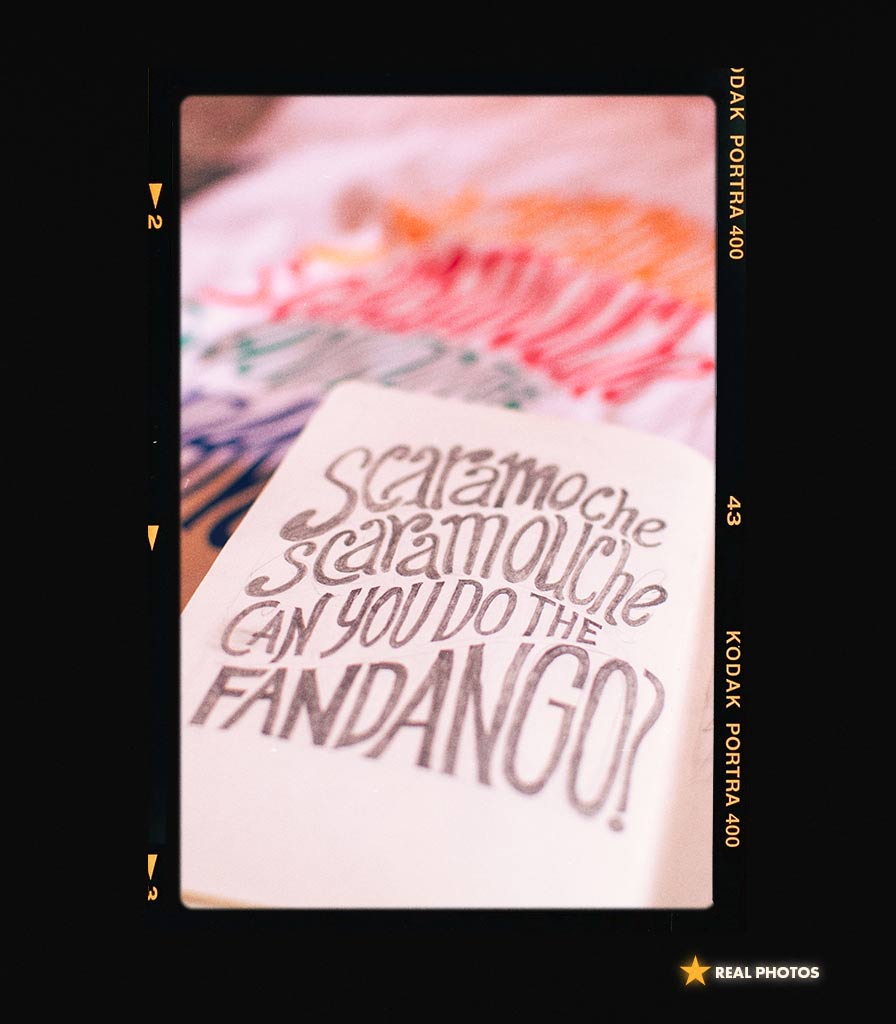 ODAK PORTRA 400
2
Scaramoche
scaramouche
CAN YOU DO THE
FANDANGO?
43
KODAK PORTRA 400
3
REAL PHOTOS